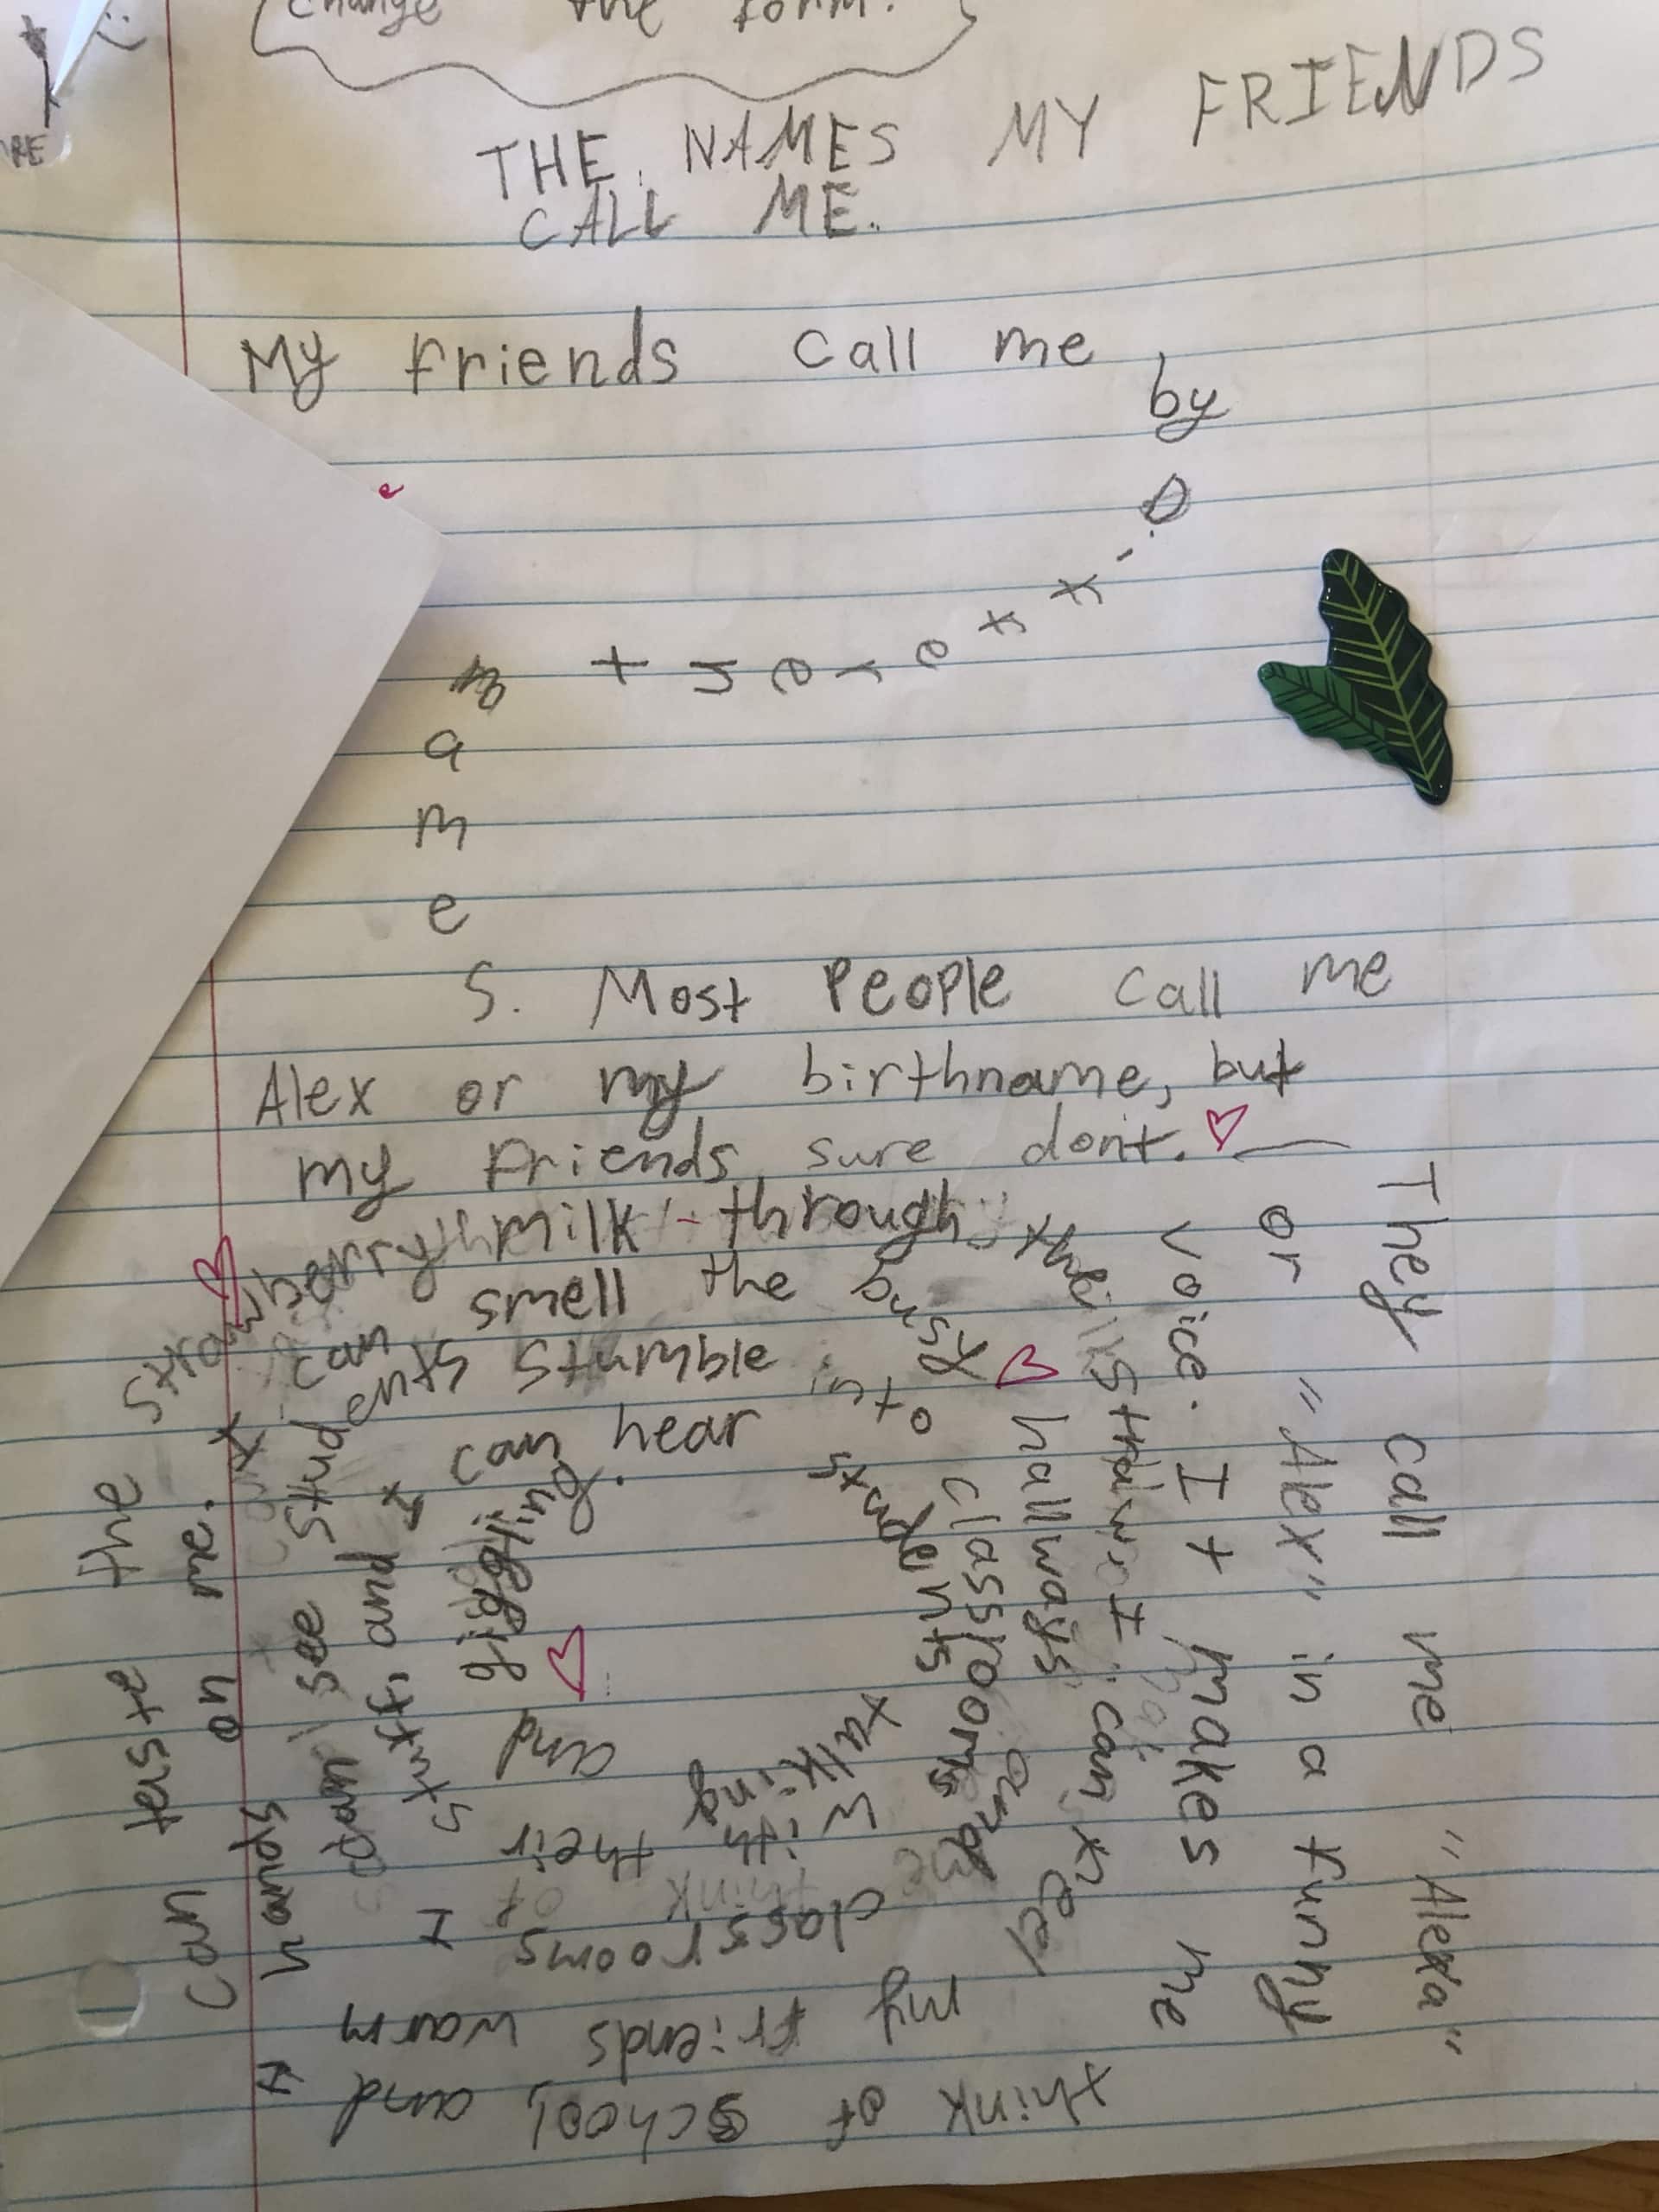 change the form.
THE NAMES MY FRIENDS
CALL ME.
My friends call me
by
D
i
f
f
e
r
e
n
t
n
a
m
e
s. Most people call me
Alex or my birthname, but
my friends sure dont.
They call me "Alexa"
or "Alex" in a funny
voice. It makes me
think of school, and I
can taste the
strawberry milk - through
the straw. I can feel
my friends warm
hands on me. I
can smell the busy
hallways and
classrooms I
can see students stumble into
classrooms
with their
stuff, and I can hear
students
talking and
giggling.